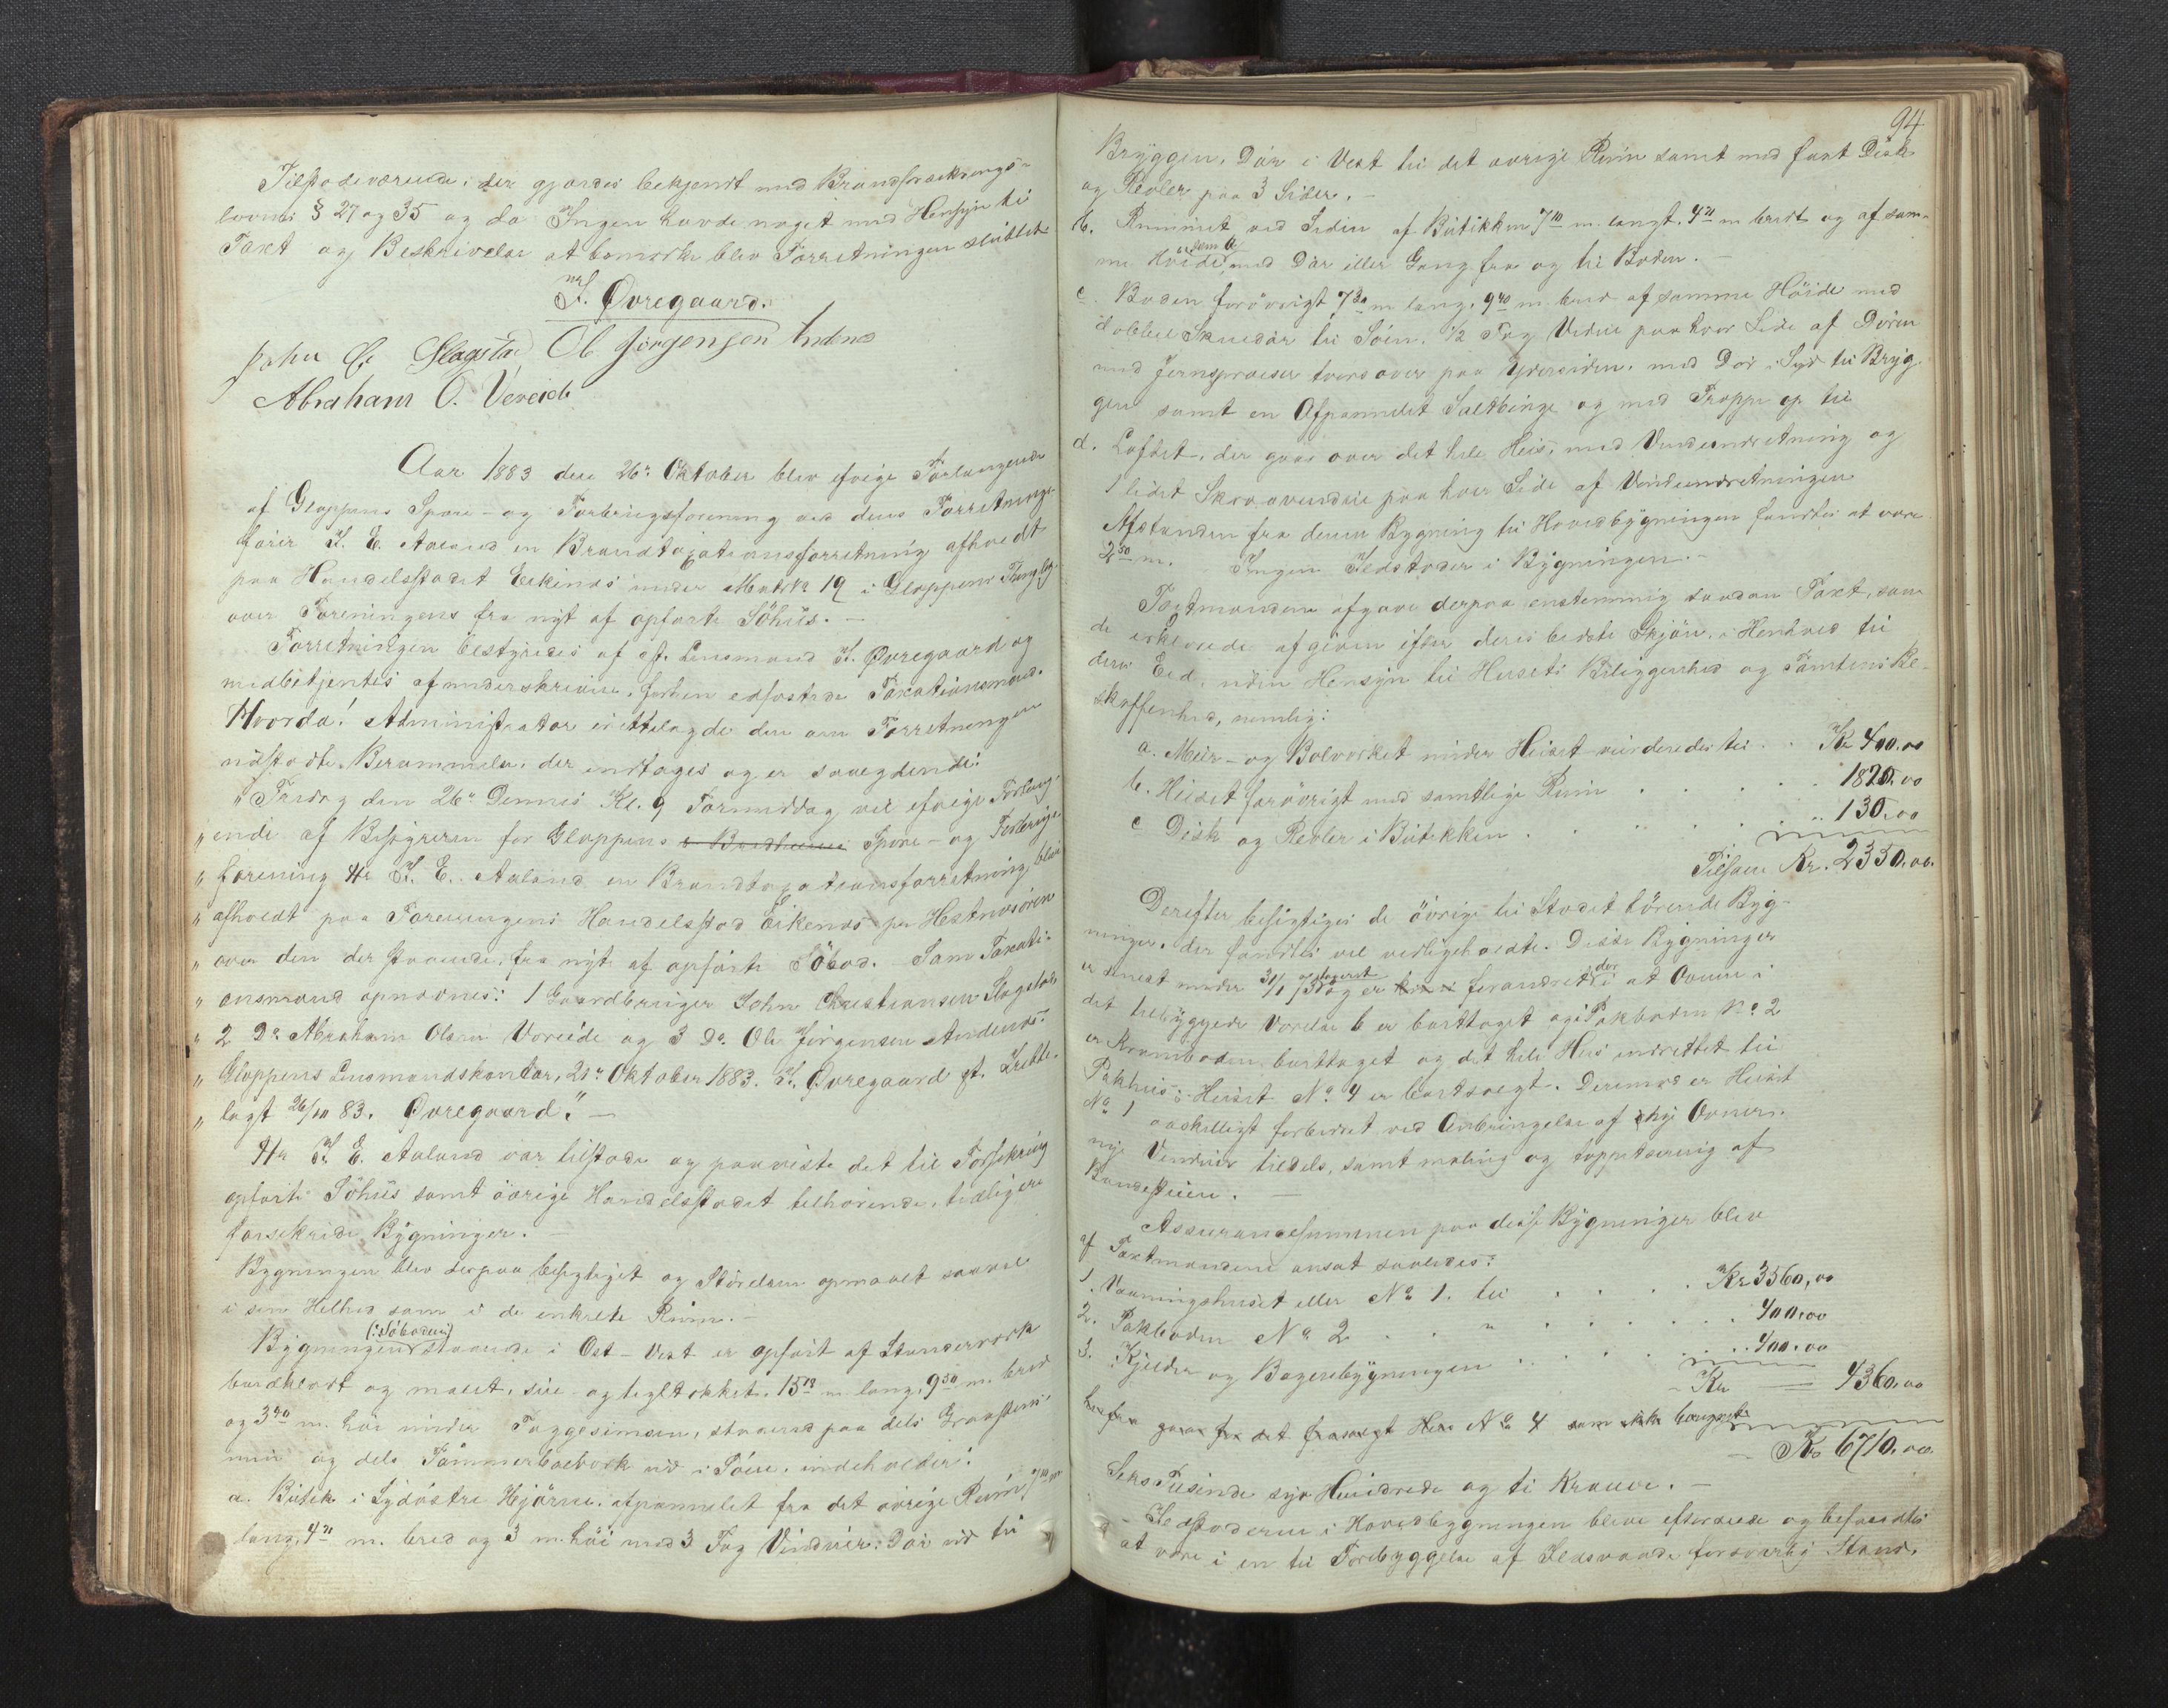 Tilstedeværende; der gjordes bekjendt med Brandforsikrings-
lovens § 27 og 35 og da Ingen havde noget med Hensyn til
Taxt og Beskrivelse at bemærke blev Forretningen sluttet
S. Øvregaard.
John C. Slagstad Ol Jørgensen Andenæs
Abraham O. Vereide
Aar 1883 den 26de Oktober blev ifølge Forlangende
af Gloppens Spare- og Forbrugsforening ved dens Forretnings-
fører S. E. Aaland en Brandtaxationsforretning afholdt
paa Handelsstedet Eikenæs under Matr No 19 i Gloppens Thinglag
over Foreningens fra nyt af opførte Söhus. —
Forretningen bestyredes af cst. Lensmand S. Øvregaard og
medbetjentes af underskrevne, forhen edfæstede Taxationsmænd.
Hvorda! Administrator irettelagde den om Forretningen
udstedte Berammelse, der indtages og er saalydende:
" Fredag den 26de Dennes Kl. 9 Formiddag vil ifølge Forlang-
" ende af Bestyreren for Gloppens Spare- og Forbrugs-
" forening Hr S. E. Aaland en Brandtaxationsforretning blive
" afholdt paa Foreningens Handelssted Eikenæs paa Hestenæsören
" over den der staaende, fra nyt af opførte Söbod. Som Taxati-
" onsmænd opnævnes: 1 Gaardbruger John Christiansen Slagstad
" 2 Do Abraham Olsen Vereide og 3 Do Ole Jörgensen Andenæs.
" Gloppens Lensmandskontor, 21de Oktober 1883. S. Øvregaard cst. Irette-
" lagt 26/10 83. Øvregaard". —
Hr S. E. Aaland var tilstede og paaviste det til Forsikring
opførte Söhus samt övrige Handelsstedet tilhörende, tidligere
forsikrede Bygninger. —
Bygningen blev derpaa besigtiget og Störrelsen opmaalt saavel
i sin Helhed som i de enkelte Rum. —
(:Söboden:)
Bygningen staaende i Ost-Vest er opført af Stenderværk
bordklædt og malet, sut og tegltækket, 15 m lang, 9 50 m. bred
og 3 m. höi under Taggesimsen, staaende paa dels Graastens-
mur og dels Tömmerbolværk ud i Söen, indeholder:
a. Butik i Sydöstre Hjörne, afpannelet fra det övrige Rum, 7 10 m
lang, 4 m. bred og 3 m. höi med 3 Fag Vinduer: Dör ud til
94
Bryggen, Dör i Vest til det övrige Rum samt med fast Disk
og Reoler paa 3 Sider. —
b. Rummet ved Siden af Butikken 7 10 m. langt, 4 m bredt og af sam-
me Höide som a med Dör eller Gang fra og til Boden. —
c. Boden forövrigt 7 m lang, 9 m bred af samme Höide med
dobbel Skuedör til Söen, 1/2 Fag Vindue paa hver Side af Dören
med Jernsprosser tversover paa Ydersiden, med Dör i Syd til Bryg-
gen samt en Afpannelet Saltbinge og med Trappe op til
d. Loftet, der gaar over det hele Hus, med Vindeindretning og
1 lidet Skraavindue paa hver Side af Vindeindretningen
Afstanden fra denne Bygning til Hovedbygningen fandtes at være
2 50 m. Ingen Ildsteder i Bygningen. —
Taxtmændene afgave derpaa enstemmig saadan Taxt, som
de erklærede afgiven efter deres bedste Skjön, i Henhold til
deres Eed, uden Hensyn til Husets Beliggenhed og Tomtens Be-
skaffenhed, nemlig:
a. Muur- og Bolværket under Huset vurderedes til . . Kr 400.00
b. Huset forövrigt med samtlige Rum . . . . . 1820.00
c Disk og Reoler i Butikken . . " . . . " 130.00
Tilsam Kr. 2350.00.
Derefter besigtiges de övrige til Stedet hörende Byg-
ninger, der fandtes vel vedligeholdte. Disse Bygninger
er senest under 31/1 taxeret og er forandret der i at Ovnen i
det tilbyggede Værelse b er borttaget og i Pakboden No 2
er Kramboden borttaget og det hele Hus indrettet til
Pakhus: Huset No 4 er bortsolgt. Derimod er Huset
No 1 adskilligt forbedret ved Anbringelse af nye Ovner,
nye Vinduer tildels, samt maling og tappetsering af
Bondestuen. —
Assurancesummen paa disse Bygninger blev
af Taxtmændene ansat saaledes:
1. Vaaningshuset eller No 1. til . . . . Kr 3560,00
2. Pakboden No 2 . . " . . . . . 400.00
3. Kjelder og Bageribygningen . . . . . 400.00
Kr 4360.00
herfra gaar fra det frasolgt Hus No 4 som ikke
Kr 6710.00.
Sex Tusinde syv Hundrede og ti Kroner. —
Ildstederne i Hovedbygningen bleve efterseede og befandtes
at være i en til Forebyggelse af Ildsvaade forsvarlig Stand.